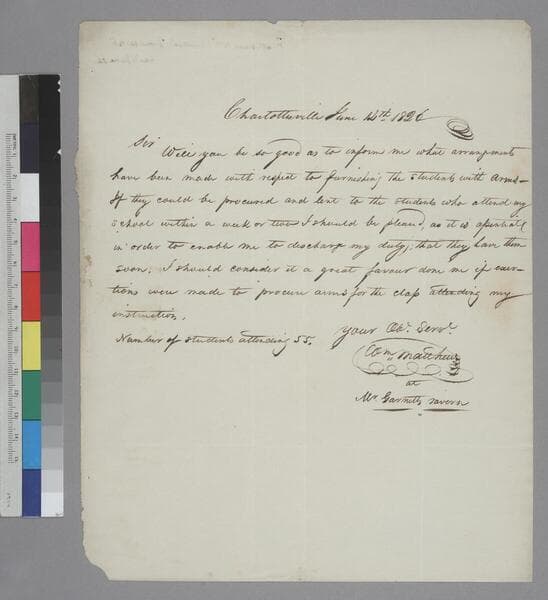 Charlottesville June 14th 1826
Sir
Will you be so good as to inform me what arrangements
have been made with respect to furnishing the students with Arms—
If they could be procured and lent to the students who attend my
school within a week or two I should be pleased, as it is essential
in order to enable me to discharge my duty, that they have them
soon. I should consider it a great favour done me if exer-
tions were made to procure arms for the class attending my
instruction.
Number of students attending 55.
your Ob. Serv.
Wm Matthews
at
Mr. Garnetts Tavern